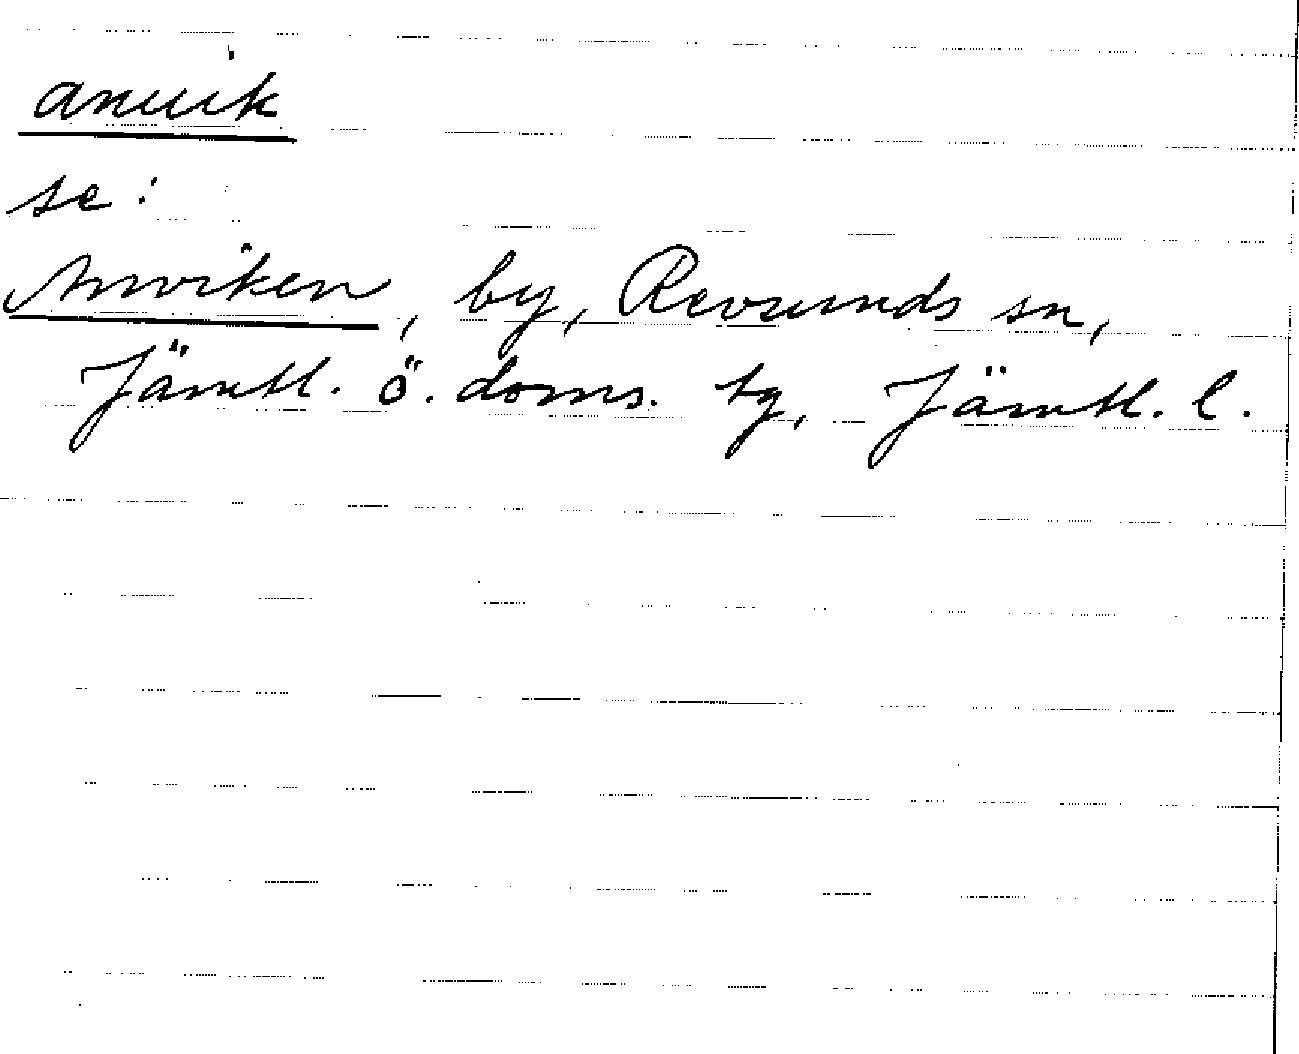 anuik
se:
Anviken, by, Revsunds sn,
Jämtl. ö. doms. tg, Jämtl. l.